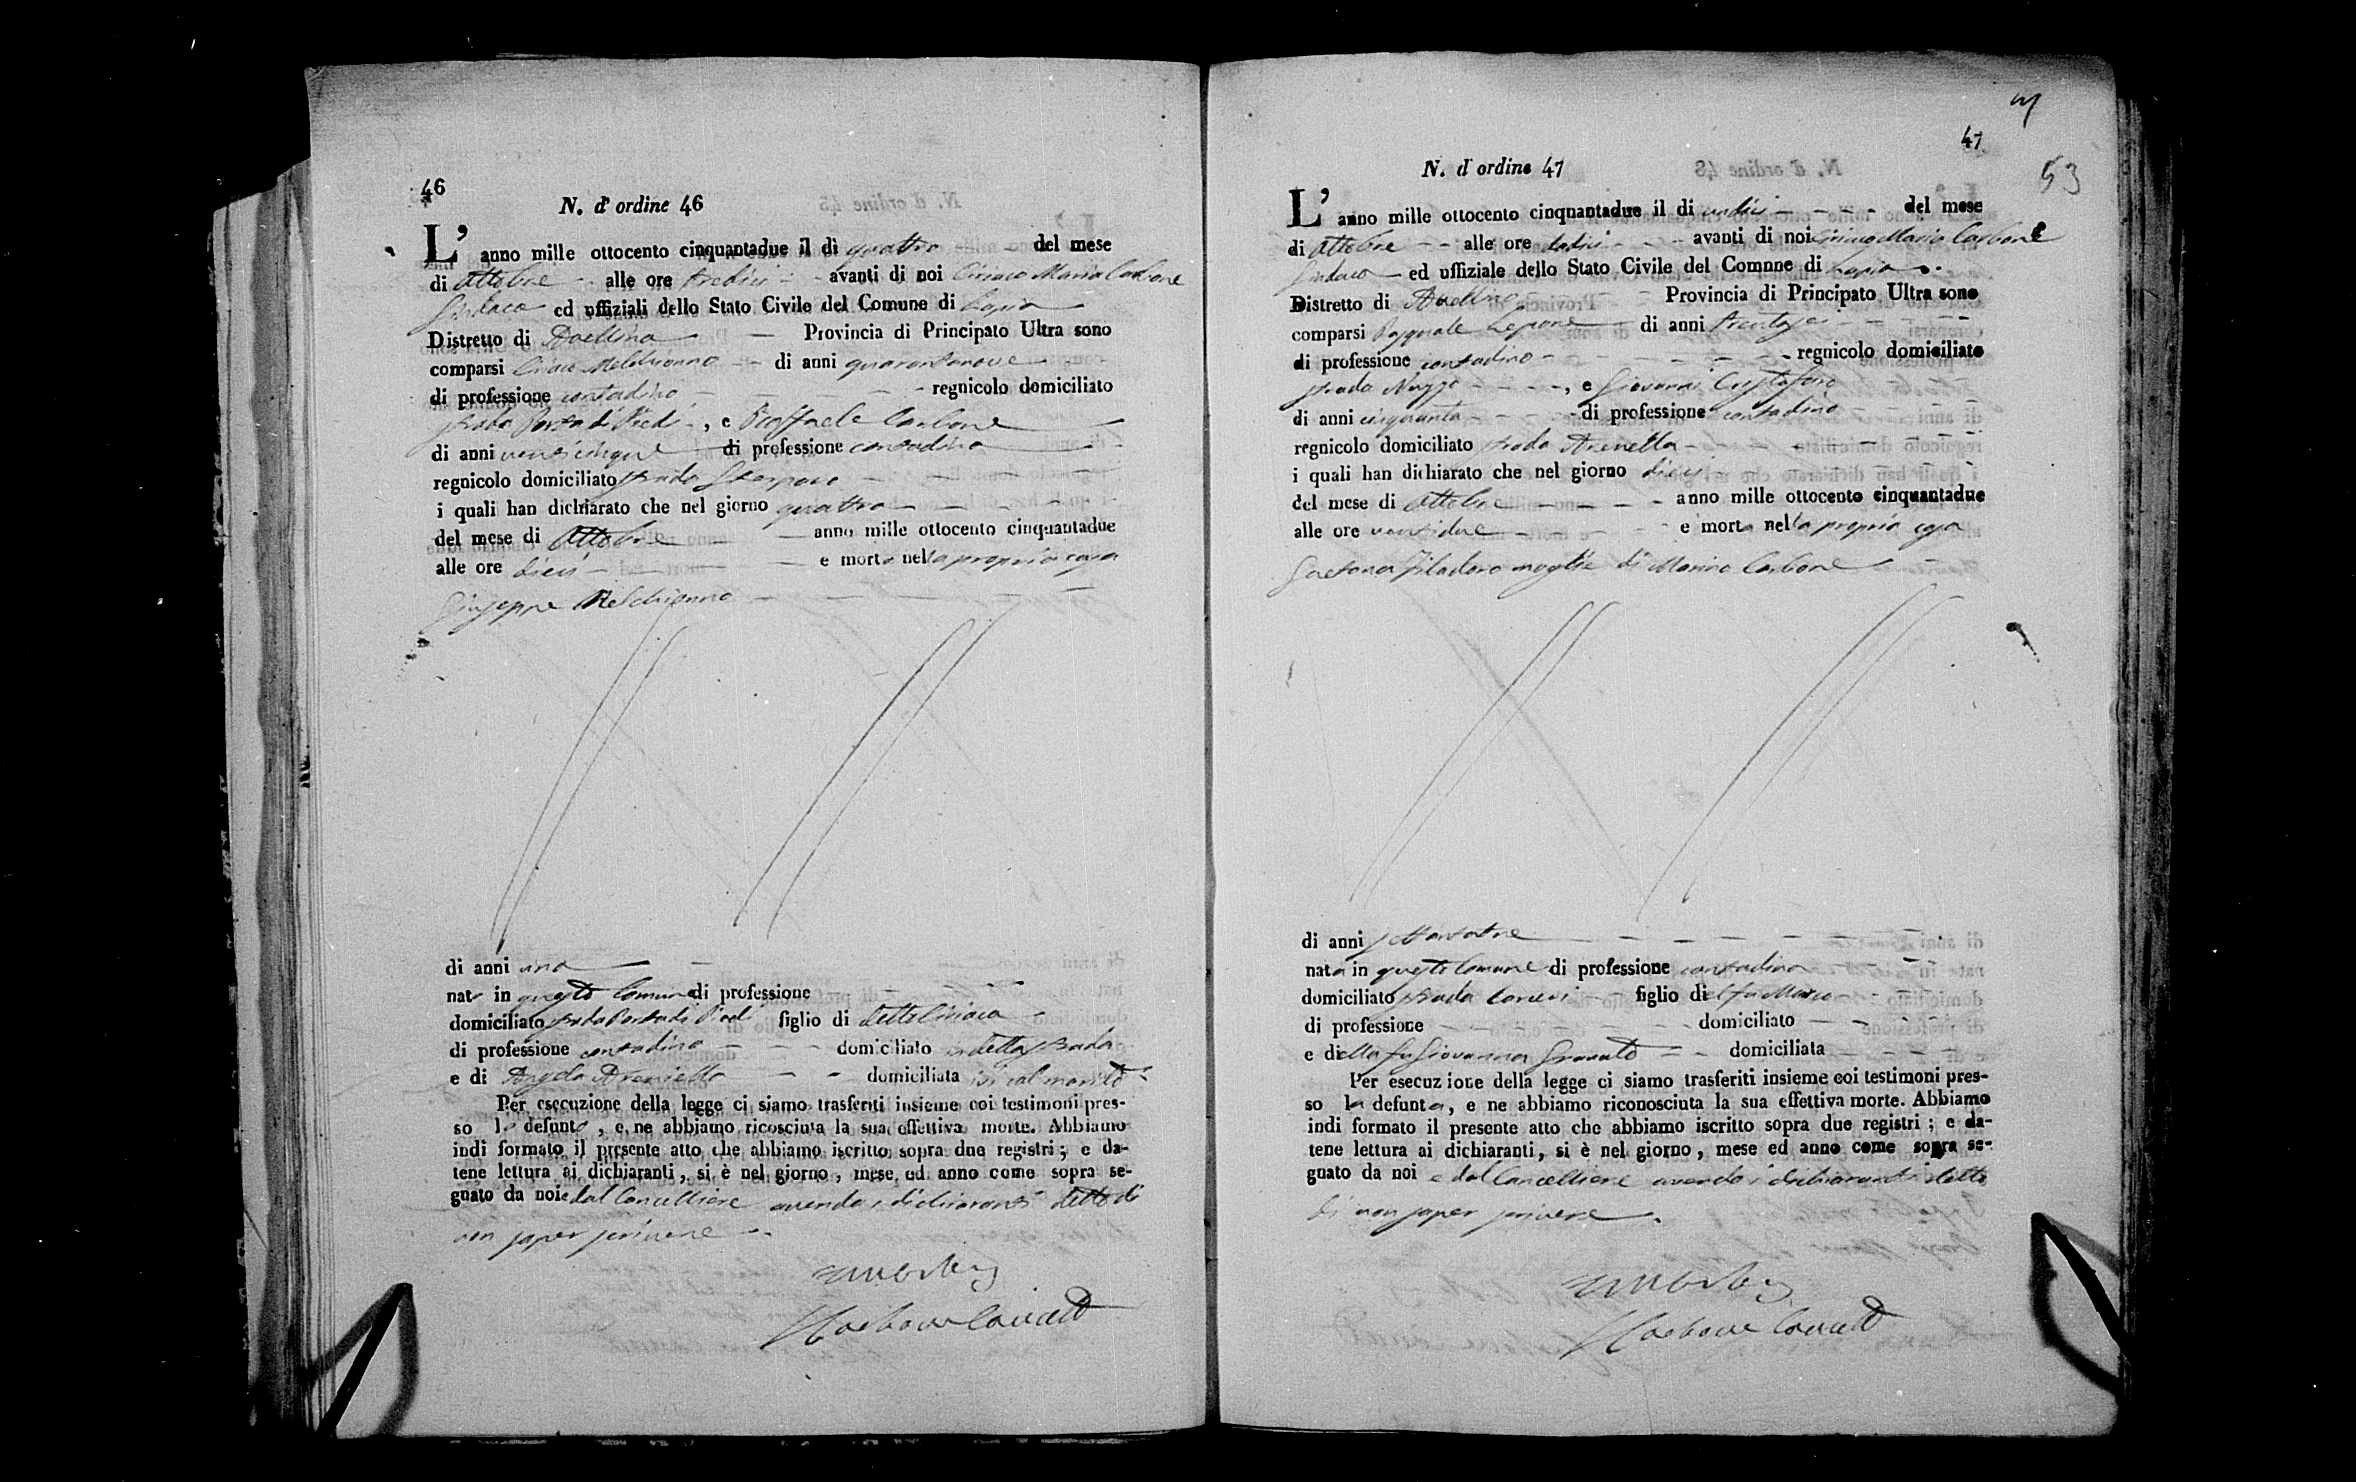 46
N. d' ordine 46
L' anno mille ottocento cinquantadue il dì quattro del mese
di Ottobre alle ore tredici avanti di noi Ciriaco Maria Carbone
Sindaco ed uffiziali dello Stato Civile del Comune di Lapio
Distretto di Avellino Provincia di Principato Ultra sono
comparsi Ciriaco Melchionno di anni quarantanove
di professione contadino regnicolo domiciliato
strada Porta di Piedi, e Raffaele Carbone
di anni venticinque di professione contadino
regnicolo domiciliato strada
i quali han dichiarato che nel giorno quattro
del mese di Ottobre anno mille ottocento cinquantadue
alle ore dieci e morto nella propria casa
Giuseppe Melchionno
di anni uno
nato in questo Comune di professione
domiciliato strada Porta di Piedi figlio di detto Ciriaco
di professione contadino domiciliato in detta strada
e di Angela domiciliata ivi col marito
Per esecuzione della legge ci siamo trasferiti insieme coi testimoni pres-
so lo defunto, e ne abbiamo ricosciuta la sua effettiva morte. Abbiamo
indi formato il presente atto che abbiamo iscritto sopra due registri; e da-
tene lettura ai dichiaranti, si è nel giorno, mese ed anno come sopra se-
gnato da noi e dal Cancelliere avendo i dichiaranti detto di
non saper scrivere
47
53
N. d' ordine 47
L' anno mille ottocento cinquantadue il di undici del mese
di Ottobre alle ore dodici avanti di noi Ciriaco Maria Carbone
Sindaco ed uffiziale dello Stato Civile del Comnne di Lapio
Distretto di Avellino Provincia di Principato Ultra sono
comparsi Pasquale Lepore di anni trentasei
di professione contadino regnicolo domiciliato
strada Nuzzo, e Giovanni Cristofaro
di anni cinquanta di professione contadino
regnicolo domiciliato strada Arenella
i quali han dichiarato che nel giorno dieci
del mese di Ottobre anno mille ottocento cinquantadue
alle ore ventidue e morta nella propria casa
Gaetana Filadoro moglie di Marino Carbone
di anni settantatre
nata in questo Comune di professione contadina
domiciliato strada Carceri figlio del fu Marco
di professione domiciliato
e della fu Giovanna Granato domiciliata
Per esecuzione della legge ci siamo trasferiti insieme coi testimoni pres-
so la defunta, e ne abbiamo riconosciuta la sua effettiva morte. Abbiamo
indi formato il presente atto che abbiamo iscritto sopra due registri; e da-
tene lettura ai dichiaranti, si è nel giorno, mese ed anno come sopra se-
gnato da noi e dal Cancelliere avendo i dichiaranti detto
di non saper scrivere